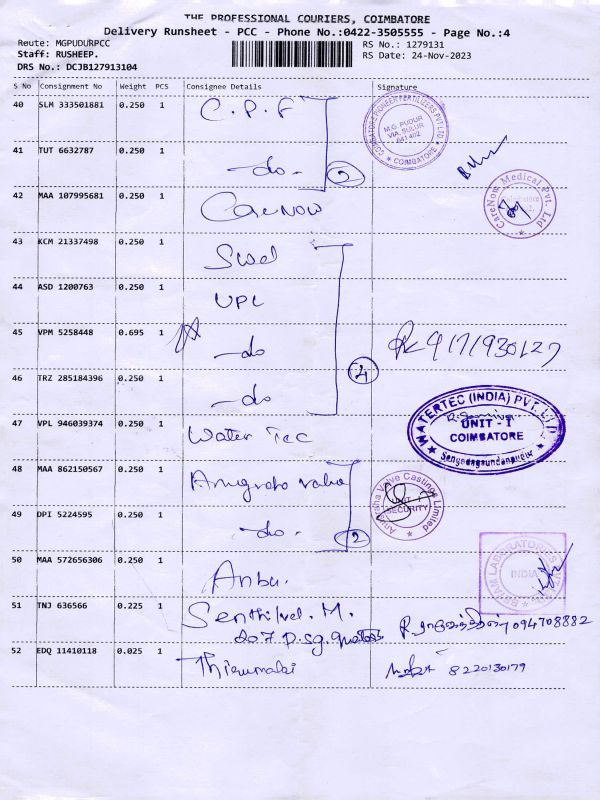 THE PROFESSIONAL COURIERS, COIMBATORE
Delivery Runsheet - PCC - Phone No.:0422-3505555 - Page No.:4
Route: MGPUDURPCC
RS No.: 1279131
Staff: RUSHEEP.
RS Date: 24-Nov-2023
DRS No.: DCJB127913104
S No Consignment No Weight PCS Consignee Details Signature
40 SLM 333501881 0.250 1 C.P.F
COIMBATORE PIONEER FERTILIZERS PVT LTD.
M.G. PUDUR
VIA. SULUR
641 402
COIMBATORE
41 TUT 6632787 0.250 1 -do- 2
42 MAA 107995681 0.250 1 CareNow
CareNow Medical Pvt. Ltd
43 KCM 21337498 0.250 1
44 ASD 1200763 0.250 1 UPL
45 VPM 5258448 0.695 1 -do
46 TRZ 285184396 0.250 1 -do 4
47 VPL 946039374 0.250 1 Water Tec
WATERTEC (INDIA) PVT. LTD.
UNIT - I
COIMBATORE
48 MAA 862150567 0.250 1 Anugraha Valve
Anugraha Valve Castings Limited
SECURITY
49 DPI 5224595 0.250 1 -do. 2
50 MAA 572656306 0.250 1 Anbu.
INDIA
51 TNJ 636566 0.225 1 Senthilvel. M.
52 EDQ 11410118 0.025 1 Thirumalai 8220130179